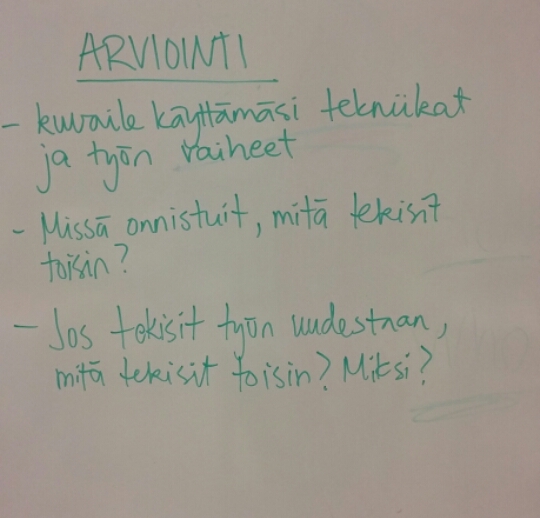 ARVIOINTI
- kuvaile käyttämäsi tekniikat
ja työn vaiheet
- Missä onnistuit, mitä tekisit
toisin?
- Jos tekisit työn uudestaan,
mitä tekisit toisin? Miksi?